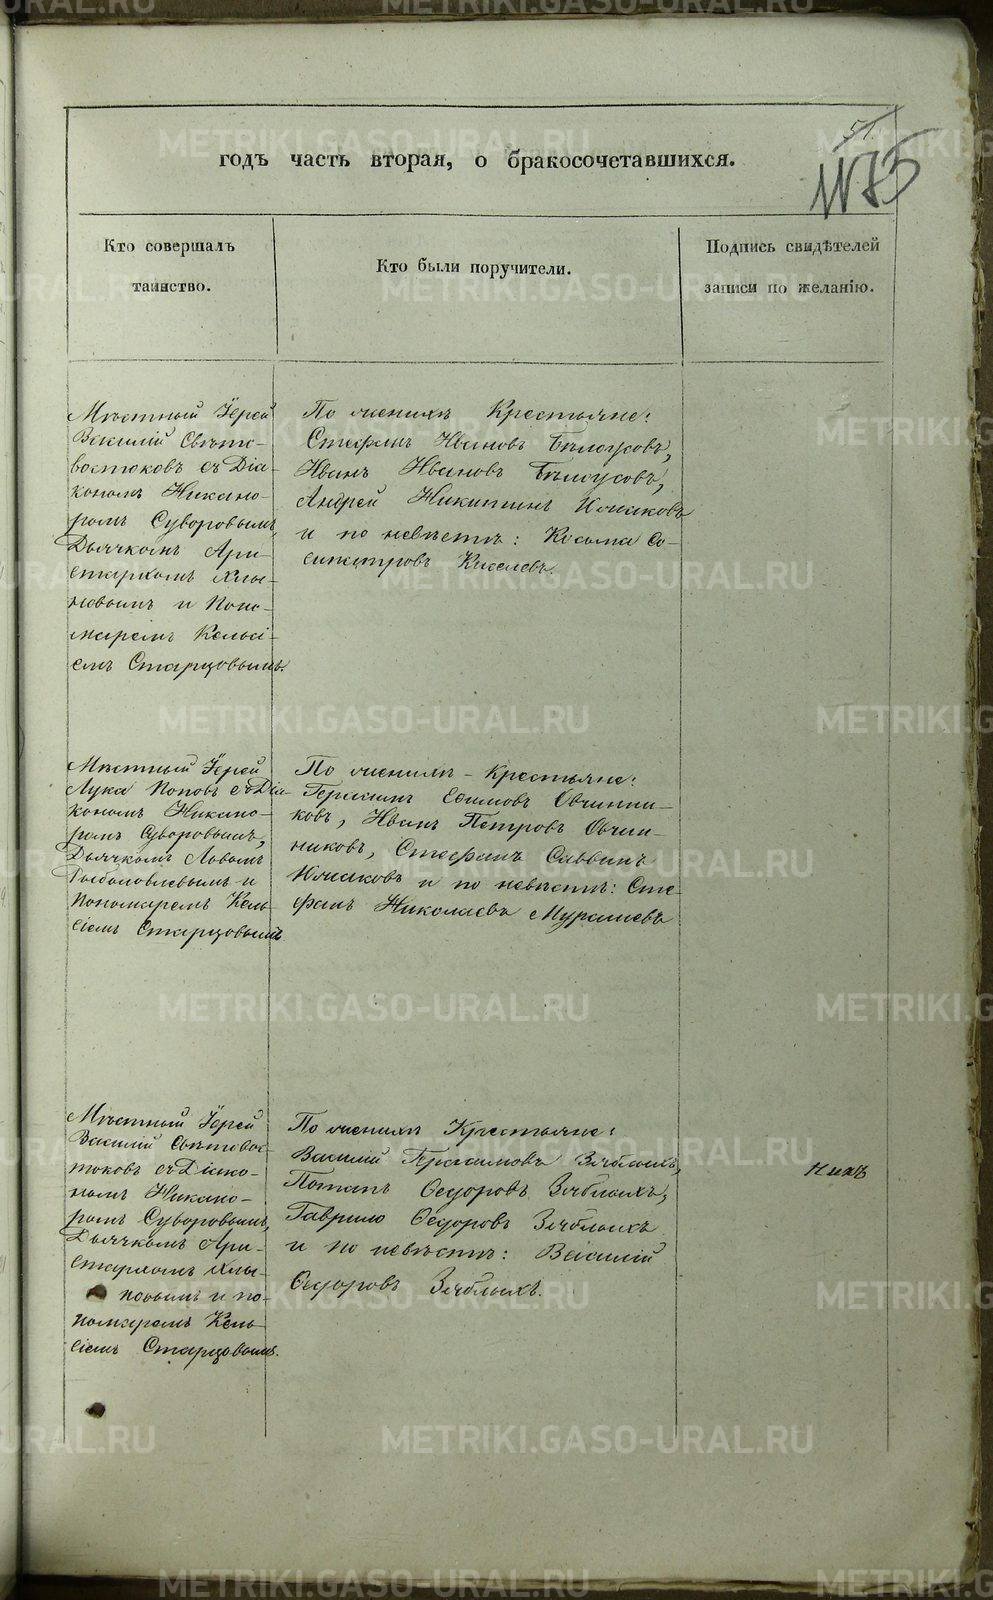 51
1175
годъ часть вторая, о бракосочетавшихся.
Кто совершалъ
таинство.
Кто были поручители.
Подпись свидѣтелей
записи по желанію.
Мѣстный Іерей
Василій Свѣто-
востоковъ съ Діа-
кономъ Никано-
ромъ Суворовымъ,
Дьячкомъ Ари-
стархомъ Хлы-
новымъ и Поно-
маремъ Кельсі-
емъ Старцовымъ.
По женихѣ Крестьяне:
Стефанъ Ивановъ Бѣлоусовъ,
Иванъ Ивановъ Бѣлоусовъ,
Андрей Никитинъ
и по невѣстѣ: Косьма Со-
сипатровъ Киселевъ.
Мѣстный Іерей
Лука Поповъ съ Діа-
кономъ Никано-
ромъ Суворовымъ,
Дьячкомъ Львомъ
и
Пономаремъ Кель-
сіемъ Старцовымъ
По женихѣ - Крестьяне:
Герасимъ Ефимовъ Овчинни-
ковъ, Иванъ Петровъ Овчин-
никовъ, Стефанъ Саввинъ
и по невѣстѣ: Сте-
фанъ Николаевъ Мурашевъ
Мѣстный Іерей
Василій Свѣтовос-
токовъ съ Діако-
номъ Никано-
ромъ Суворовымъ,
Дьячкомъ Ари-
стархомъ Хлы-
новымъ и по-
номаремъ Кель-
сіемъ Старцовымъ.
По женихѣ Крестьяне:
Василій Герасимовъ Зяблыхъ,
Потапъ Ѳедоровъ Зяблыхъ,
Гаврило Ѳедоровъ Зяблыхъ
и по невѣстѣ: Василій
Ѳедоровъ Зяблыхъ.
METRIKI.GASO-URAL.RU